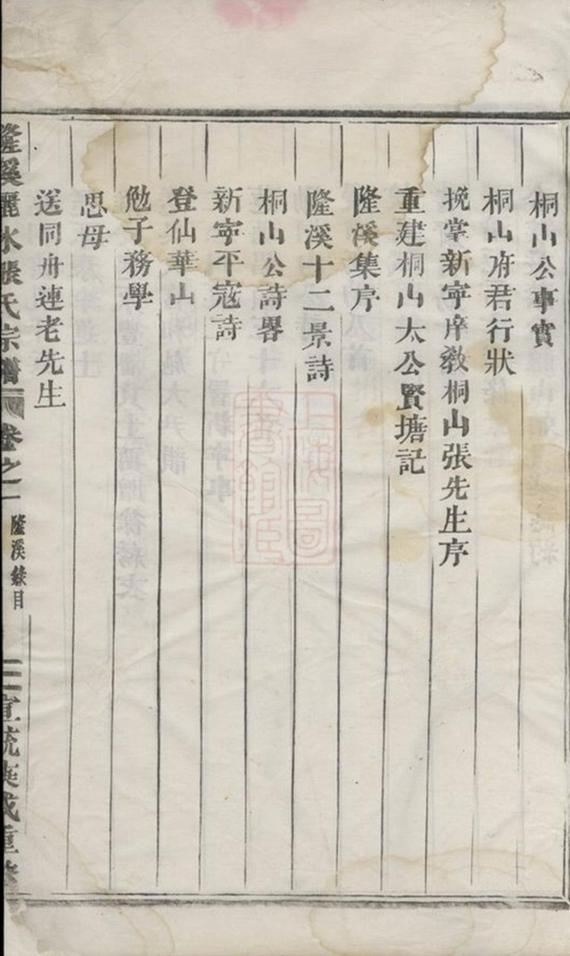 桐山公事實
桐山府君行狀
挽掌新寧庠敎桐山張先生序
重建桐山太公賢塘記
隆溪集序
隆溪十二景詩
桐山公詩畧
新寧平寇詩
登仙華山
勉子務學
思母
送同舟連老先生
隆溪麗水張氏宗譜 卷之二 隆溪錄目 二 宣統庚戌重修